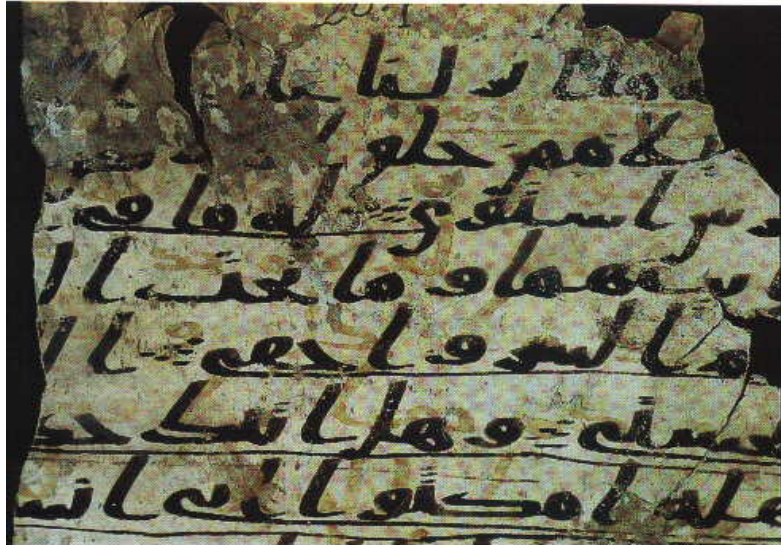 ما انزلنا علي
يلا ممن خلق ا
ش استوى له ما في
بينهما وما تحت ال
م السر و اخفى ال
لحسنى وهل اتيك حد
هله امكثوا اني انس